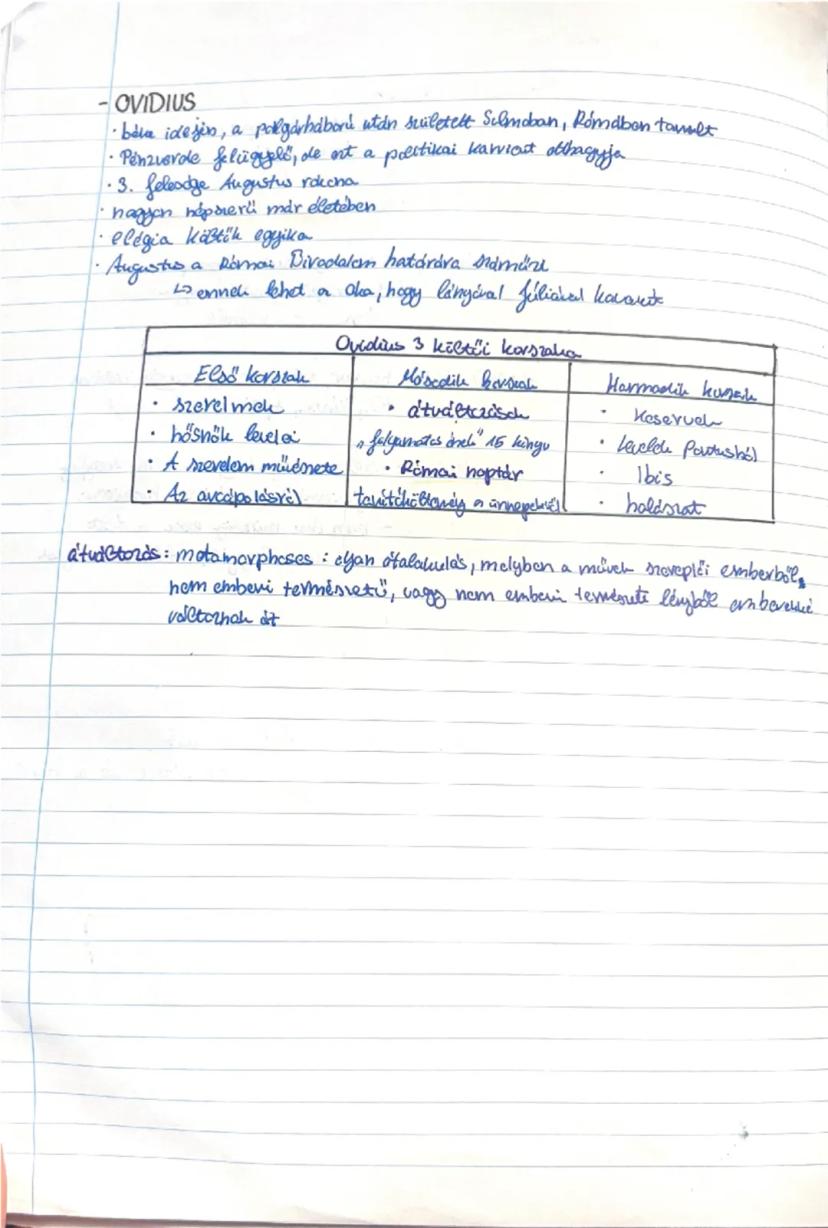 - OVIDIUS
· béke idején, a polgárháború után született Sulmoban, Rómában tanult
· Pénzverde felügyelő, de ezt a politikai karriert otthagyja
· 3. felesége Augustus rokona
· nagyon népszerű már életében
· elégia költők egyike
· Augustus a Római Birodalom határára száműzi
↳ ennek lehet a oka, hogy lányával Júliával kavart
Ovidius 3 költői korszaka
Első korszak Második korszak Harmadik korszak
· szerelmek · átváltozások · Keservek
· hősnők levelei „folyamatos ének" 15 könyv · Levelek Pontusból
· A szerelem művészete · Római naptár · Ibis
· Az arcápolásról tanítóköltemény a ünnepekről · halászat
átváltozás: metamorphoses: olyan átalakulás, melyben a művek szereplői emberből,
nem emberi természetű, vagy nem emberi természetű lényből emberekké
változnak át